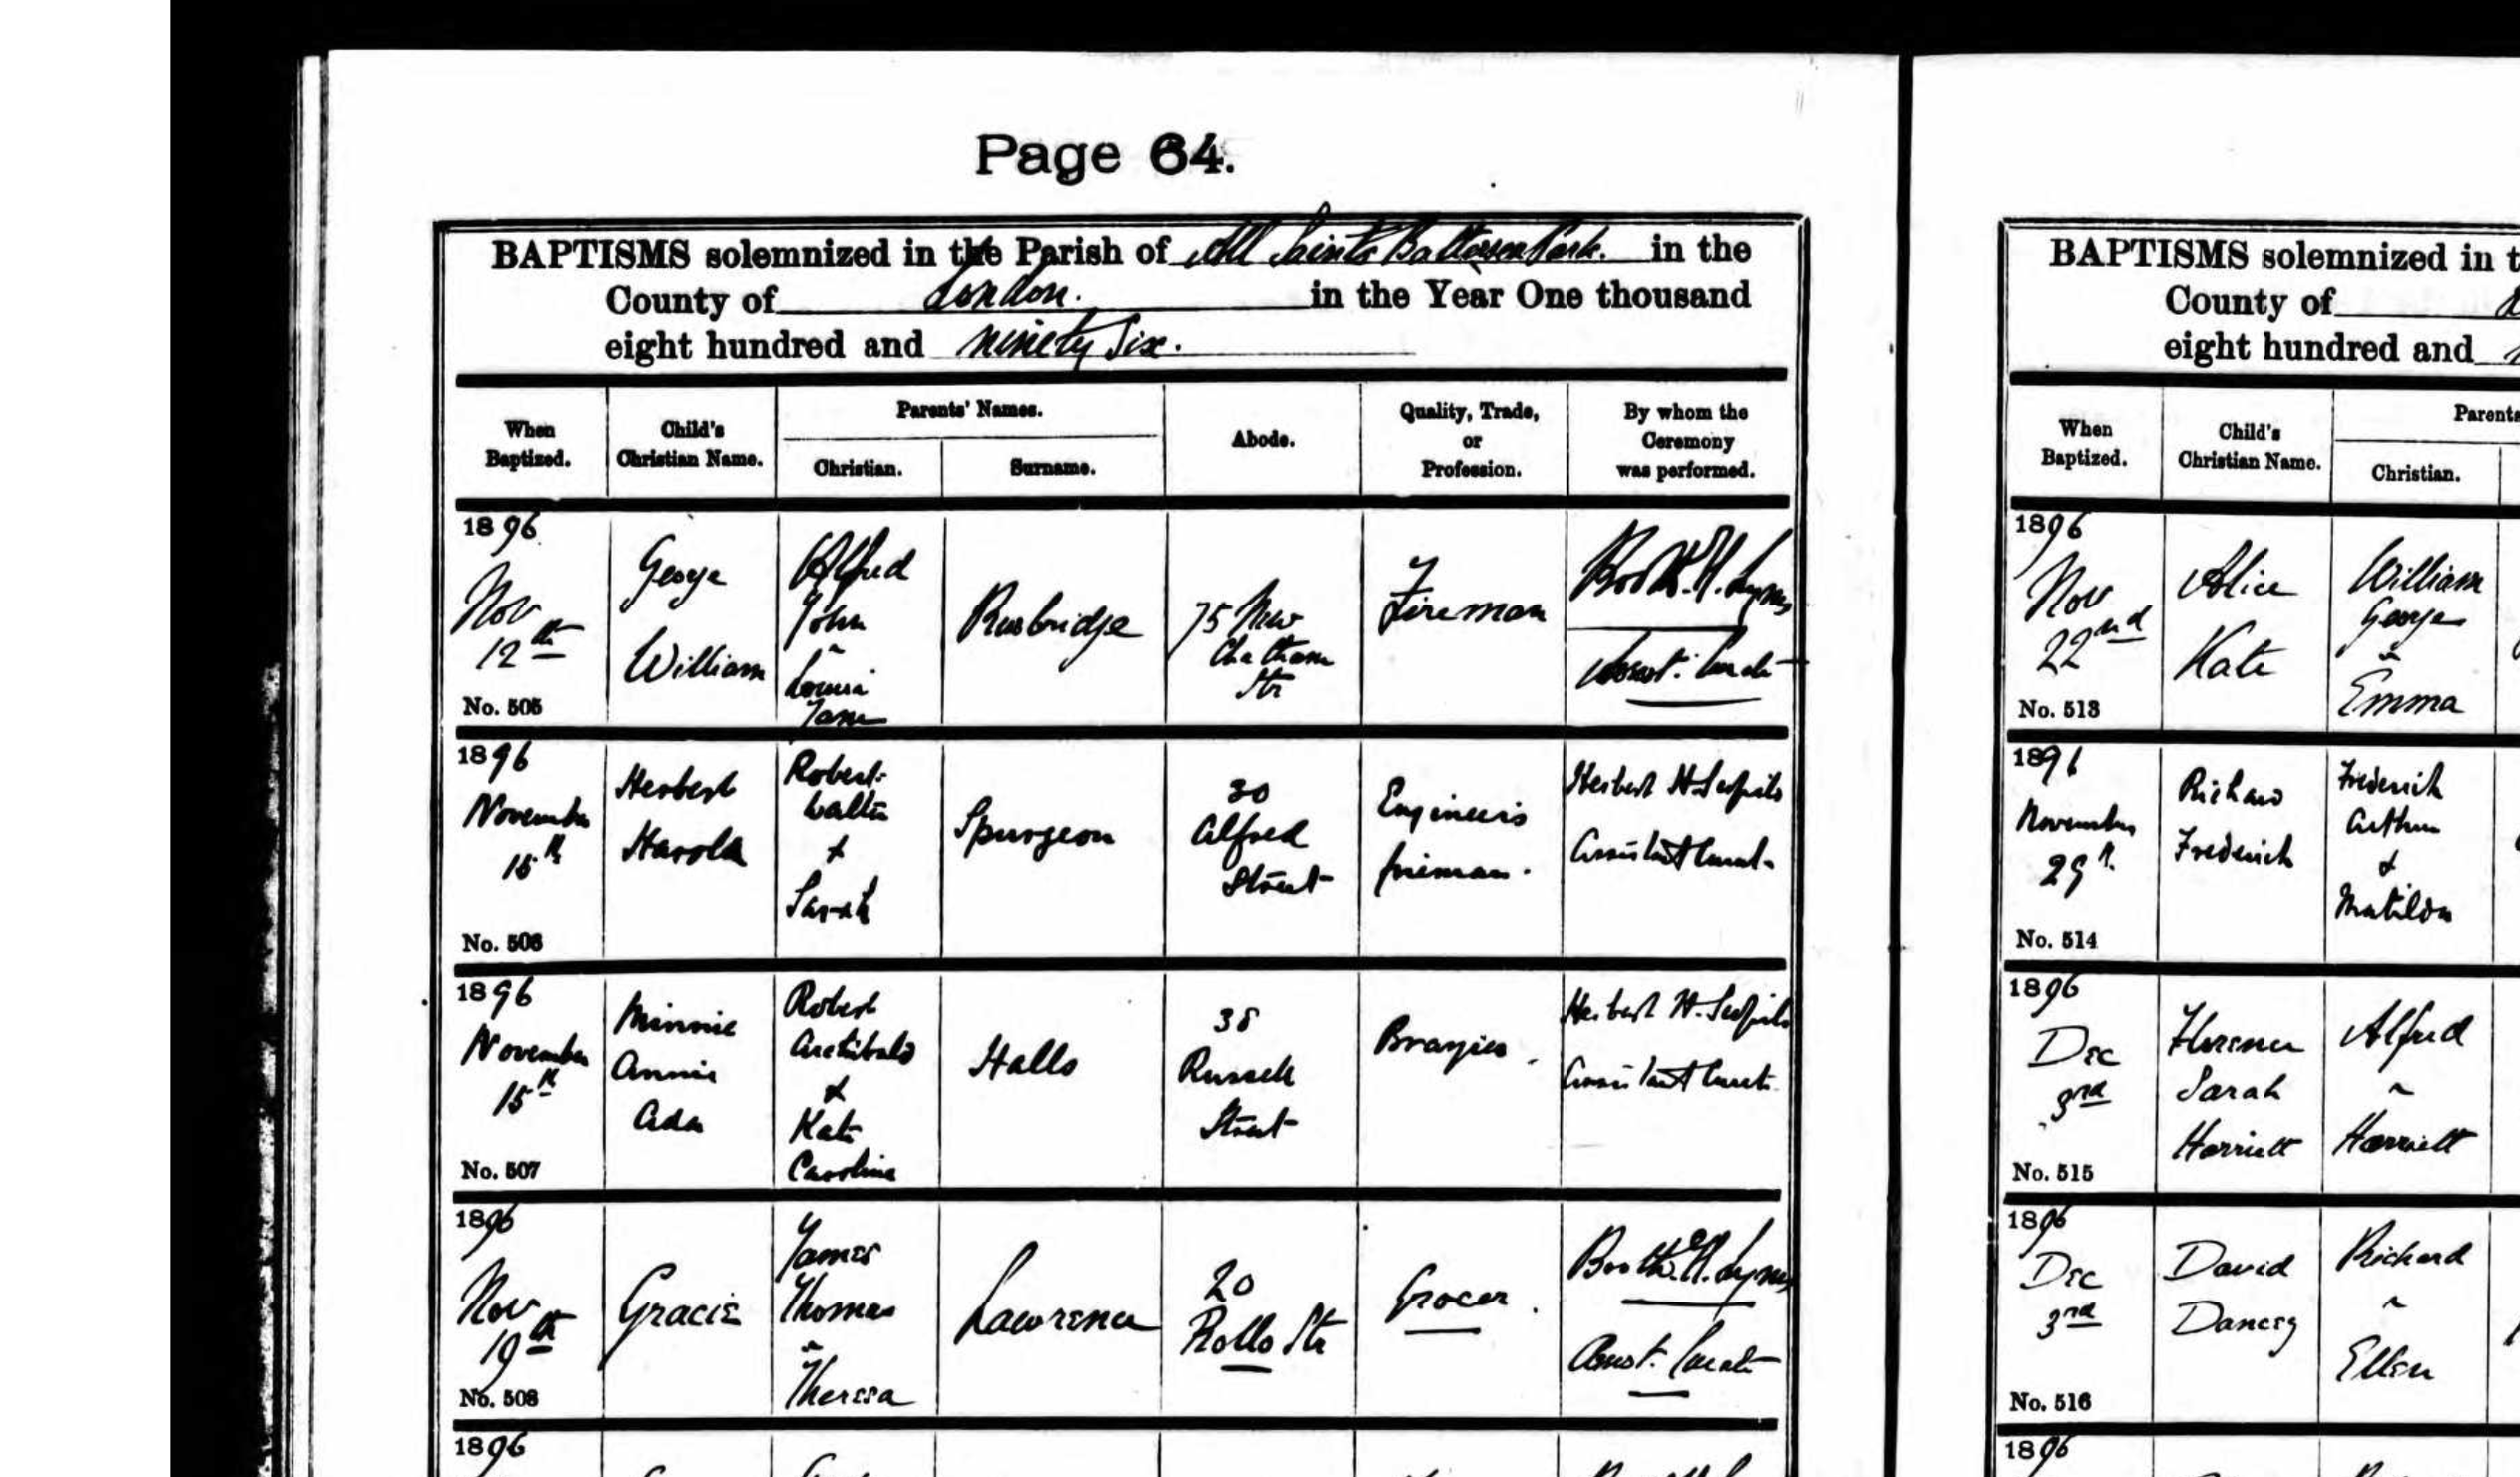 Page 64.
BAPTISMS solemnized in the Parish of All Saints Battersea Park. in the
County of London. in the Year One thousand
eight hundred and ninety six.
When Baptized.
Child's Christian Name.
Parents' Names.
Christian.
Surname.
Abode.
Quality, Trade, or Profession.
By whom the Ceremony was performed.
1896
Nov
12th
No. 505
George
William
Alfred
John
&
Louisa
Jane
Rusbridge
75 New
Chatham
Str
Fireman
Booth
Assist. Curate
1896
November
15th
No. 506
Herbert
Harold
Robert
Walter
+
Sarah
Spurgeon
30
Alfred
Street
Engineers
fireman.
Herbert H.
Assistant Curate
1896
November
15th
No. 507
Minnie
Annie
Ada
Robert
Archibald
&
Kate
Caroline
Halls
38
Russell
Street
Brazier.
Herbert H.
Assistant Curate
1896
Nov
19th
No. 508
Gracie
James
Thomas
&
Theresa
Lawrence
20
Rollo Str
Grocer.
Booth
Assist. Curate
1896
BAPTISMS solemnized in
County of
eight hundred and
When Baptized.
Child's Christian Name.
Parents
Christian.
1896
Nov
22nd
No. 513
Alice
Kate
William
George
&
Emma
1896
November
29th
No. 514
Richard
Frederick
Frederick
Arthur
&
Matilda
1896
Dec
3rd
No. 515
Florence
Sarah
Harriett
Alfred
&
Harriett
1896
Dec
3rd
No. 516
David
Dancey
Richard
&
Ellen
1896